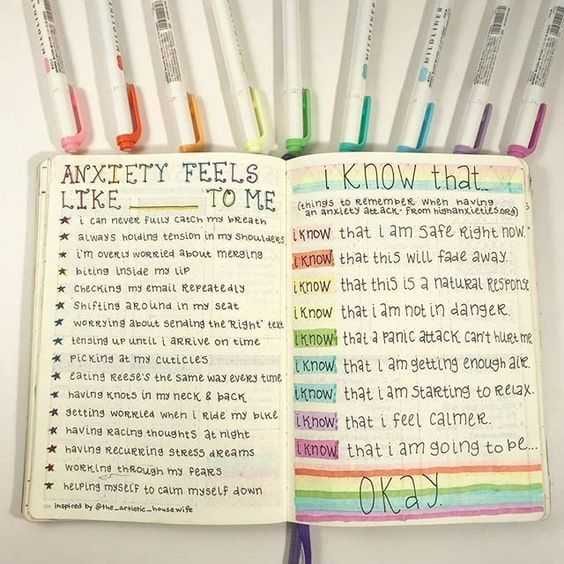 ANXIETY FEELS
LIKE ______ TO ME
★ i can never fully catch my breath
★ always holding tension in my shoulders
★ i'm overly worried about merging
★ biting inside my lip
★ checking my email repeatedly
★ shifting around in my seat
★ worrying about sending the "right" text
★ tensing up until i arrive on time
★ picking at my cuticles
★ eating Reese's the same way every time
★ having knots in my neck & back
★ getting worried when i ride my bike
★ having racing thoughts at night
★ having recurring stress dreams
★ working through my fears
★ helping myself to calm myself down
inspired by @the_artistic_housewife
i know that...
(things to remember when having
an anxiety attack - from highanxieties.org)
i know that i am safe right now.
i know that this will fade away.
i know that this is a natural response
i know that i am not in danger.
i know that a panic attack can't hurt me
i know that i am getting enough air.
i know that i am starting to relax.
i know that i feel calmer.
i know that i am going to be...
okay.